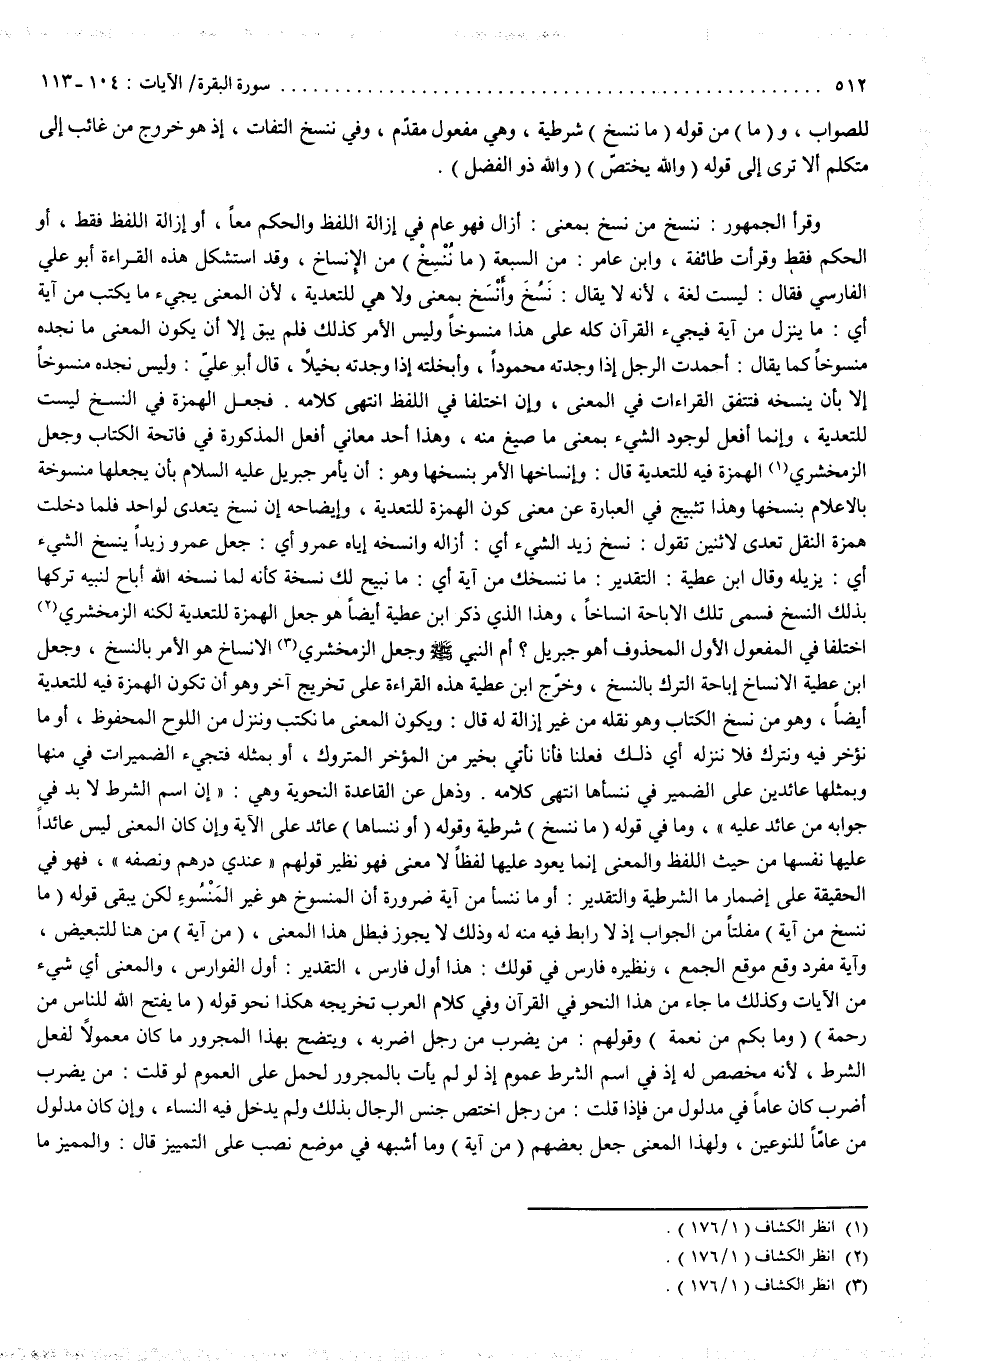 ٥١٢ ........................................................ سورة البقرة/ الآيات : ١٠٤ـ١١٣
للصواب ، و ( ما ) من قوله ( ما ننسخ ) شرطية ، وهي مفعول مقدّم ، وفي ننسخ التفات ، إذ هو خروج من غائب إلى
متكلم ألا ترى إلى قوله ( والله يختصّ ) ( والله ذو الفضل ) .
وقرأ الجمهور : ننسخ من نسخ بمعنى : أزال فهو عام في إزالة اللفظ والحكم معاً ، أو إزالة اللفظ فقط ، أو
الحكم فقط وقرأت طائفة ، وابن عامر : من السبعة ( ما نُنْسِخْ ) من الإنساخ ، وقد استشكل هذه القـراءة أبو علي
الفارسي فقال : ليست لغة ، لأنه لا يقال : نَسَُخَ وأَنْسَخ بمعنى ولا هي للتعدية ، لأن المعنى يجيء ما يكتب من آية
أي : ما ينزل من آية فيجيء القرآن كله على هذا منسوخاً وليس الأمر كذلك فلم يبق إلا أن يكون المعنى ما نجده
منسوخاً كما يقال : أحمدت الرجل إذا وجدته محموداً ، وأبخلته إذا وجدته بخيلاً ، قال أبو عليّ : وليس نجده منسوخاً
إلا بأن ينسخه فتتفق القراءات في المعنى ، وإن اختلفا في اللفظ انتهى كلامه . فجعـل الهمزة في النسـخ ليست
للتعدية ، وإنما أفعل لوجود الشيء بمعنى ما صيغ منه ، وهذا أحد معاني أفعل المذكورة في فاتحة الكتاب وجعل
الزمخشري(١) الهمزة فيه للتعدية قال : وإنساخها الأمر بنسخها وهو : أن يأمر جبريل عليه السلام بأن يجعلها منسوخة
بالاعلام بنسخها وهذا تثبيج في العبارة عن معنى كون الهمزة للتعدية ، وإيضاحه إن نسخ يتعدى لواحد فلما دخلت
همزة النقل تعدى لاثنين تقول : نسخ زيد الشيء أي : أزاله وانسخه إياه عمرو أي : جعل عمرو زيداً ينسخ الشيء
أي : يزيله وقال ابن عطية : التقدير : ما ننسخك من آية أي : ما نبيح لك نسخة كأنه لما نسخه الله أباح لنبيه تركها
بذلك النسخ فسمى تلك الاباحة انساخاً ، وهذا الذي ذكر ابن عطية أيضاً هو جعل الهمزة للتعدية لكنه الزمخشري(٢)
اختلفا في المفعول الأول المحذوف أهو جبريل ؟ أم النبي ﷺ وجعل الزمخشري(٣) الانساخ هو الأمر بالنسخ ، وجعل
ابن عطية الانساخ إباحة الترك بالنسخ ، وخرّج ابن عطية هذه القراءة على تخريج آخر وهو أن تكون الهمزة فيه للتعدية
أيضاً ، وهو من نسخ الكتاب وهو نقله من غير إزالة له قال : ويكون المعنى ما نكتب وننزل من اللوح المحفوظ ، أو ما
نؤخر فيه ونترك فلا ننزله أي ذلـك فعلنا فأنا نأتي بخير من المؤخر المتروك ، أو بمثله فتجيء الضميرات في منها
وبمثلها عائدين على الضمير في ننسأها انتهى كلامه . وذهل عن القاعدة النحوية وهي : « إن اسم الشرط لا بد في
جوابه من عائد عليه » ، وما في قوله ( ما ننسخ ) شرطية وقوله ( أو ننساها ) عائد على الآية وإن كان المعنى ليس عائداً
عليها نفسها من حيث اللفظ والمعنى إنما يعود عليها لفظاً لا معنى فهو نظير قولهم « عندي درهم ونصفه » ، فهو في
الحقيقة على إضمار ما الشرطية والتقدير : أو ما ننسأ من آية ضرورة أن المنسوخ هو غير المَنْسُوءِ لكن يبقى قوله ( ما
ننسخ من آية ) مفلتاً من الجواب إذ لا رابط فيه منه له وذلك لا يجوز فبطل هذا المعنى ، ( من آية ) من هنا للتبعيض ،
وآية مفرد وقع موقع الجمع ، ونظيره فارس في قولك : هذا أول فارس ، التقدير : أول الفوارس ، والمعنى أي شيء
من الآيات وكذلك ما جاء من هذا النحو في القرآن وفي كلام العرب تخريجه هكذا نحو قوله ( ما يفتح الله للناس من
رحمة ) ( وما بكم من نعمة ) وقولهم : من يضرب من رجل اضربه ، ويتضح بهذا المجرور ما كان معمولاً لفعل
الشرط ، لأنه مخصص له إذ في اسم الشرط عموم إذ لو لم يأت بالمجرور لحمل على العموم لو قلت : من يضرب
أضرب كان عاماً في مدلول من فإذا قلت : من رجل اختص جنس الرجال بذلك ولم يدخل فيه النساء ، وإن كان مدلول
من عامّاً للنوعين ، ولهذا المعنى جعل بعضهم ( من آية ) وما أشبهه في موضع نصب على التمييز قال : والمميز ما
(١) انظر الكشاف ( ١/ ١٧٦ ) .
(٢) انظر الكشاف ( ١/ ١٧٦ ) .
(٣) انظر الكشاف ( ١/ ١٧٦ ) .